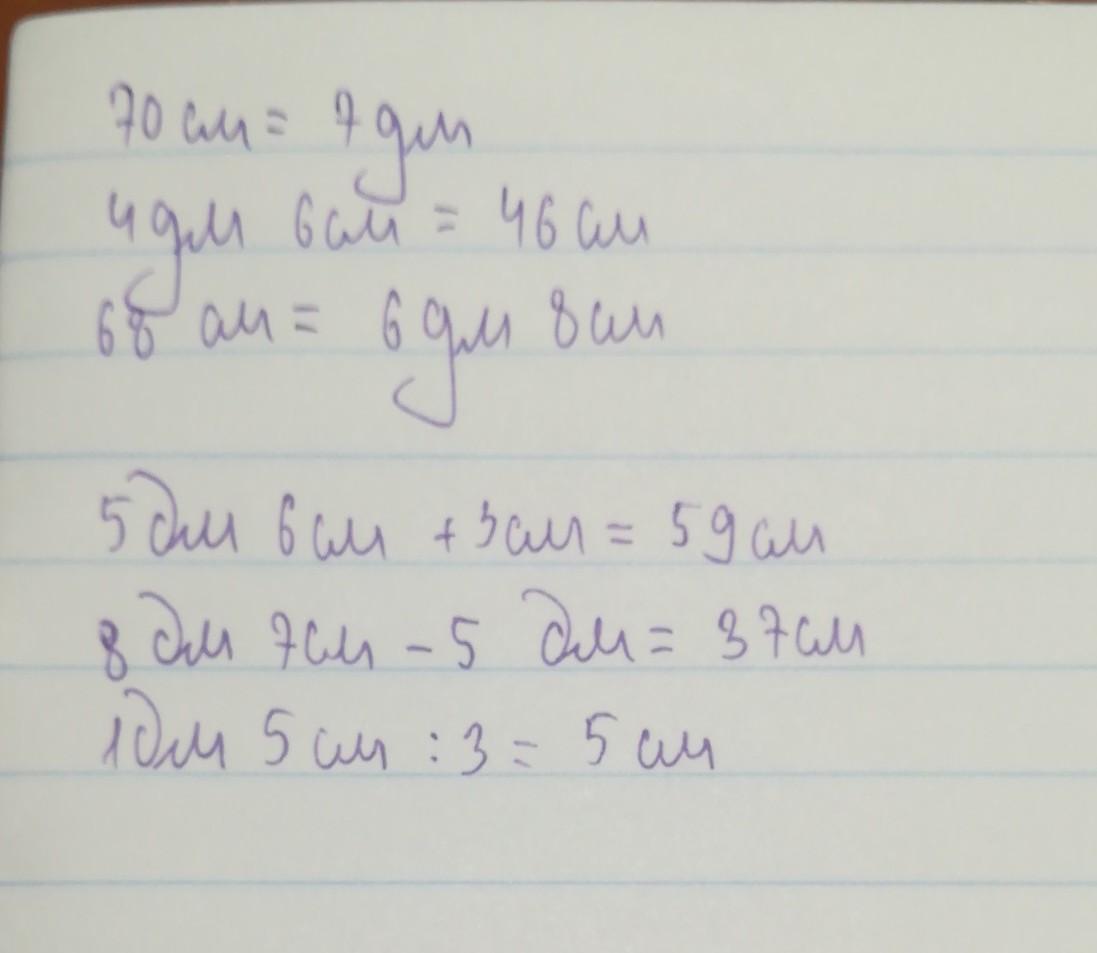 70 см = 7 дм
4 дм 6 см = 46 см
68 см = 6 дм 8 см
5 дм 6 см + 3 см = 59 см
8 дм 7 см - 5 дм = 37 см
1 дм 5 см : 3 = 5 см